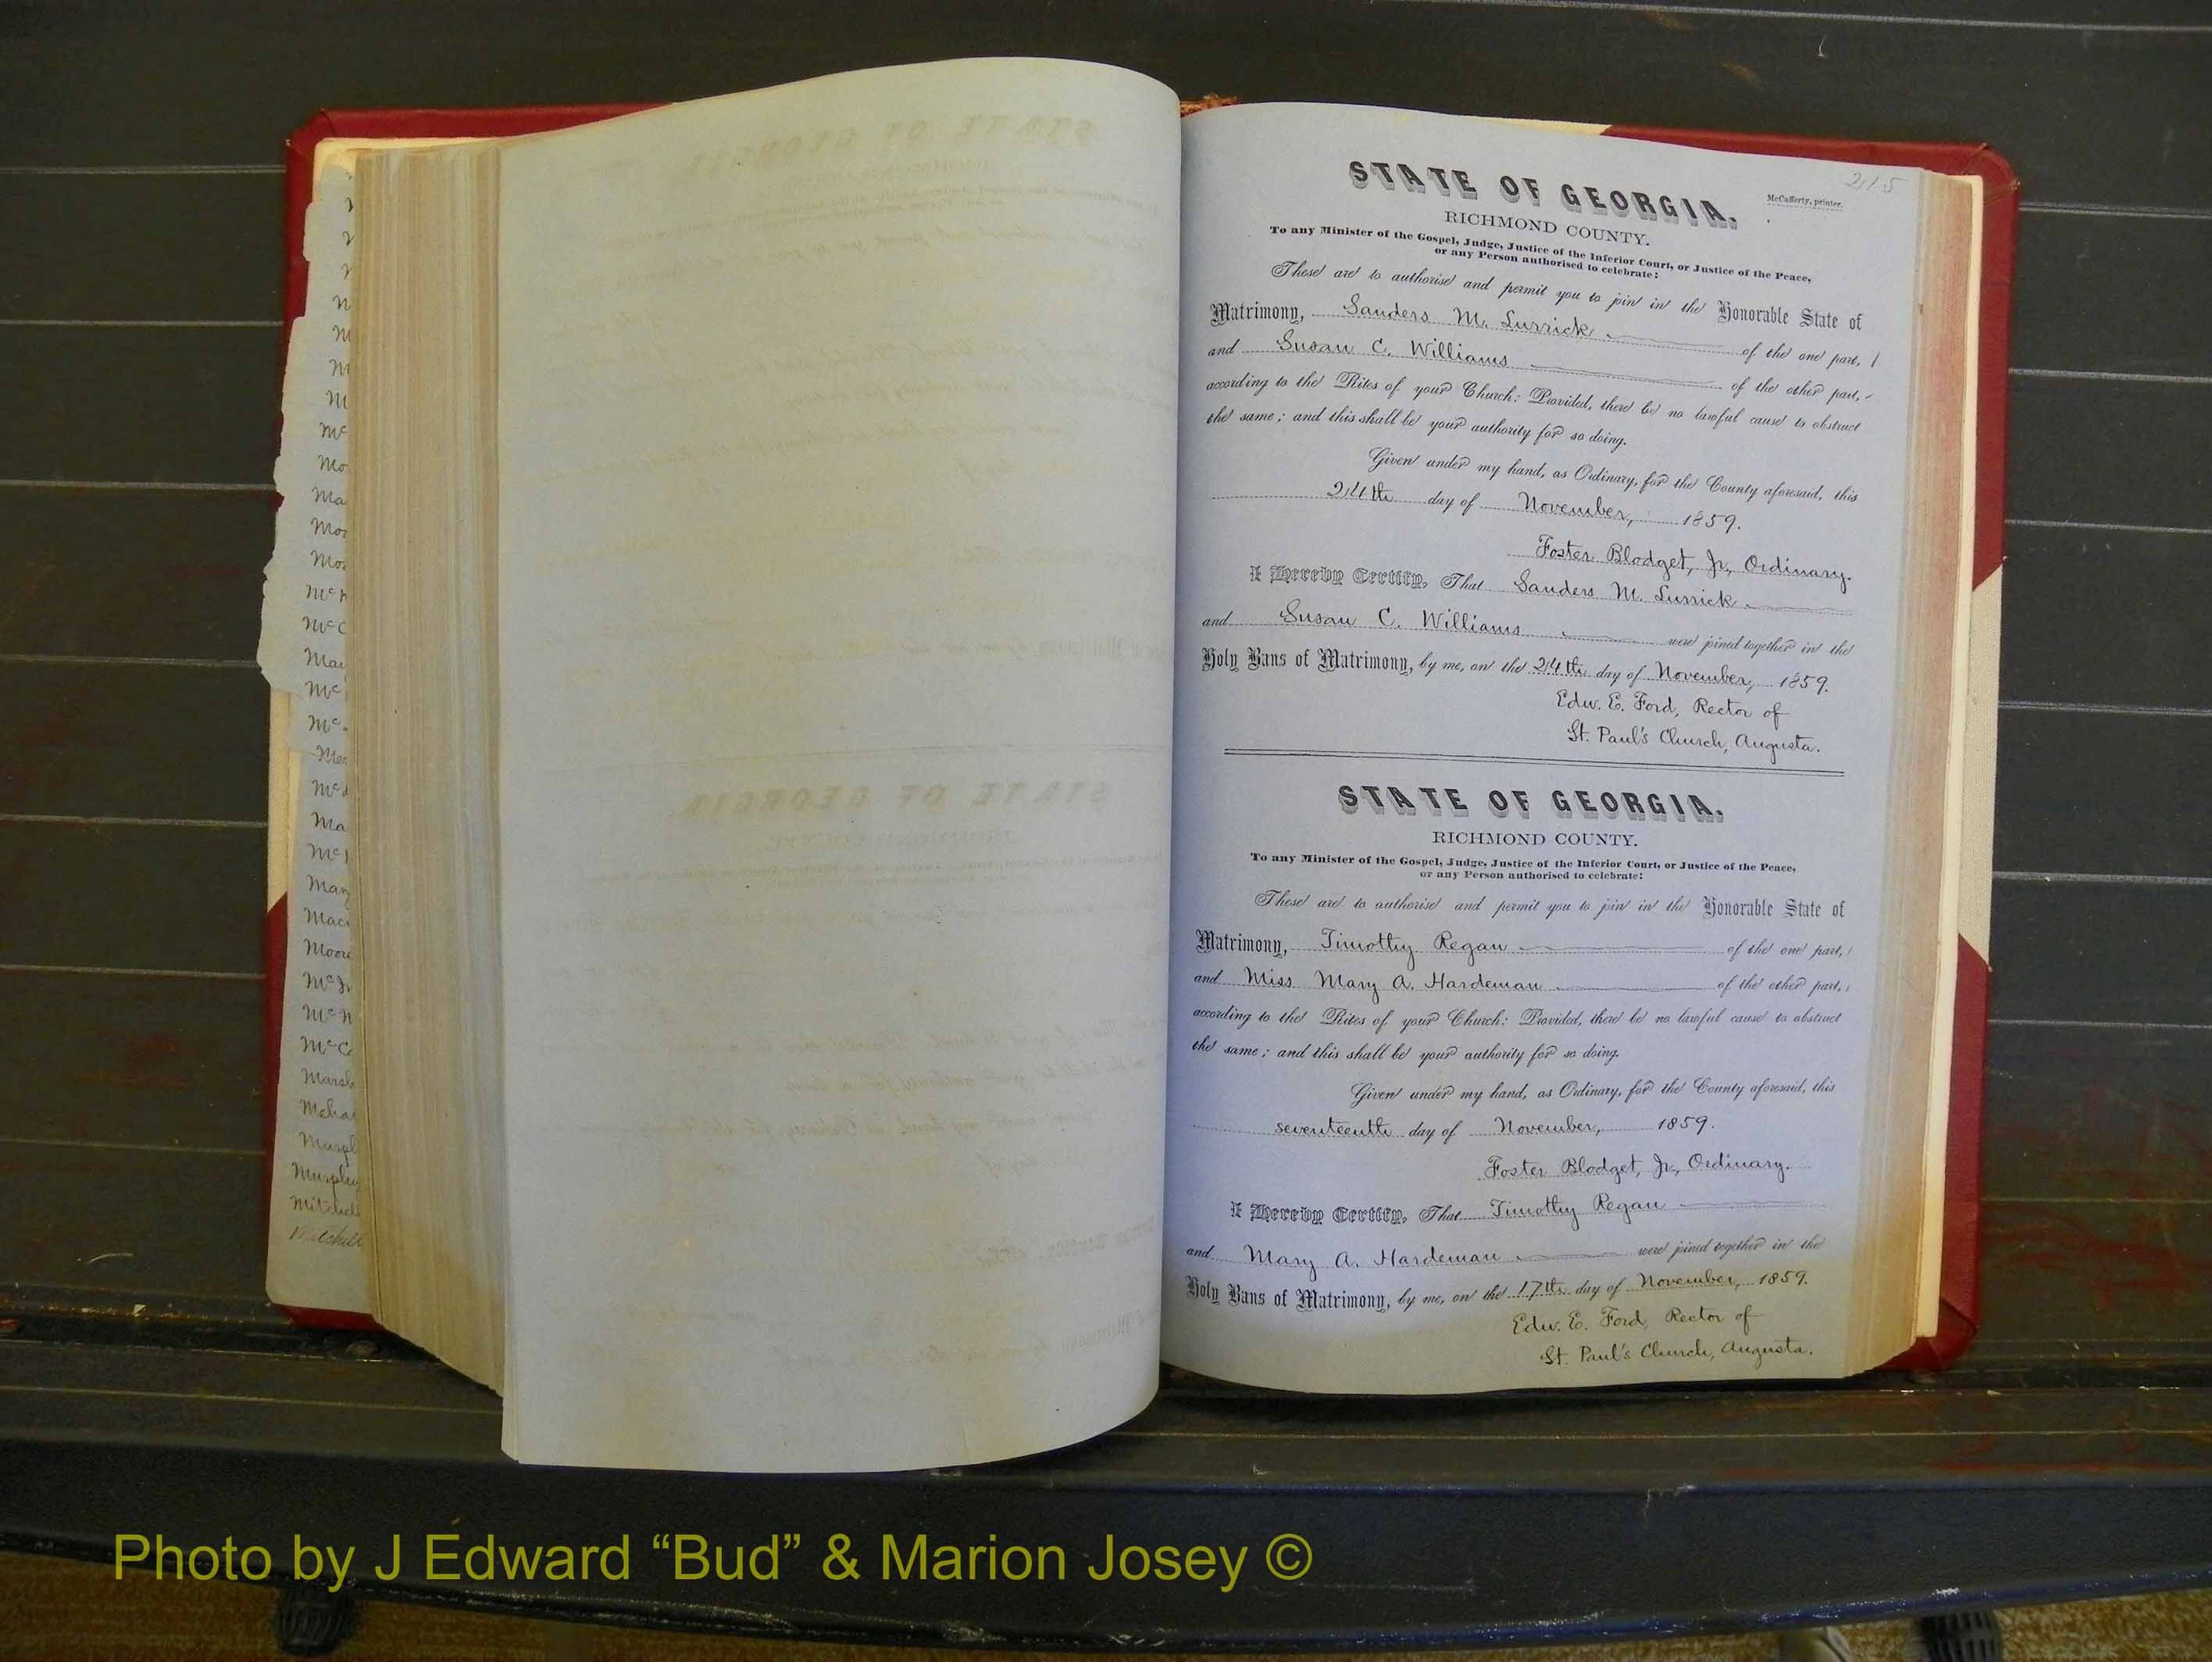 m
m
m
Mc
Mo
Ma
Moo
Mo
McK
McC
Mar
Mc
Mc
Mer
Mcd
Ma
Mc
Mary
Mac
Moore
McC
Marsh
Meha
Murph
Murphy
Mitchell
Mitchell
STATE OF GEORGIA.
STATE OF GEORGIA
215
McCafferty, printer.
STATE OF GEORGIA.
RICHMOND COUNTY.
To any Minister of the Gospel, Judge, Justice of the Inferior Court, or Justice of the Peace,
or any Person authorised to celebrate:
These are to authorise and permit you to join in the Honorable State of
Matrimony, Sanders M. Surrick of the one part,
and Susan C. Williams of the other part,
according to the Rites of your Church: Provided, there be no lawful cause to obstruct
the same; and this shall be your authority for so doing.
Given under my hand, as Ordinary, for the County aforesaid, this
24th day of November, 1859.
Foster Blodget, Jr, Ordinary.
I Hereby Certify, That Sanders M. Surrick
and Susan C. Williams were joined together in the
Holy Bans of Matrimony, by me, on the 24th day of November, 1859.
Edw. E. Ford, Rector of
St. Paul's Church, Augusta.
STATE OF GEORGIA.
RICHMOND COUNTY.
To any Minister of the Gospel, Judge, Justice of the Inferior Court, or Justice of the Peace,
or any Person authorised to celebrate:
These are to authorise and permit you to join in the Honorable State of
Matrimony, Timothy Regan of the one part,
and Miss Mary A. Hardeman of the other part,
according to the Rites of your Church: Provided, there be no lawful cause to obstruct
the same; and this shall be your authority for so doing.
Given under my hand, as Ordinary, for the County aforesaid, this
seventeenth day of November, 1859.
Foster Blodget, Jr, Ordinary.
I Hereby Certify, That Timothy Regan
and Mary A. Hardeman were joined together in the
Holy Bans of Matrimony, by me, on the 17th day of November, 1859.
Edw. E. Ford, Rector of
St. Paul's Church, Augusta.
Photo by J Edward “Bud” & Marion Josey ©